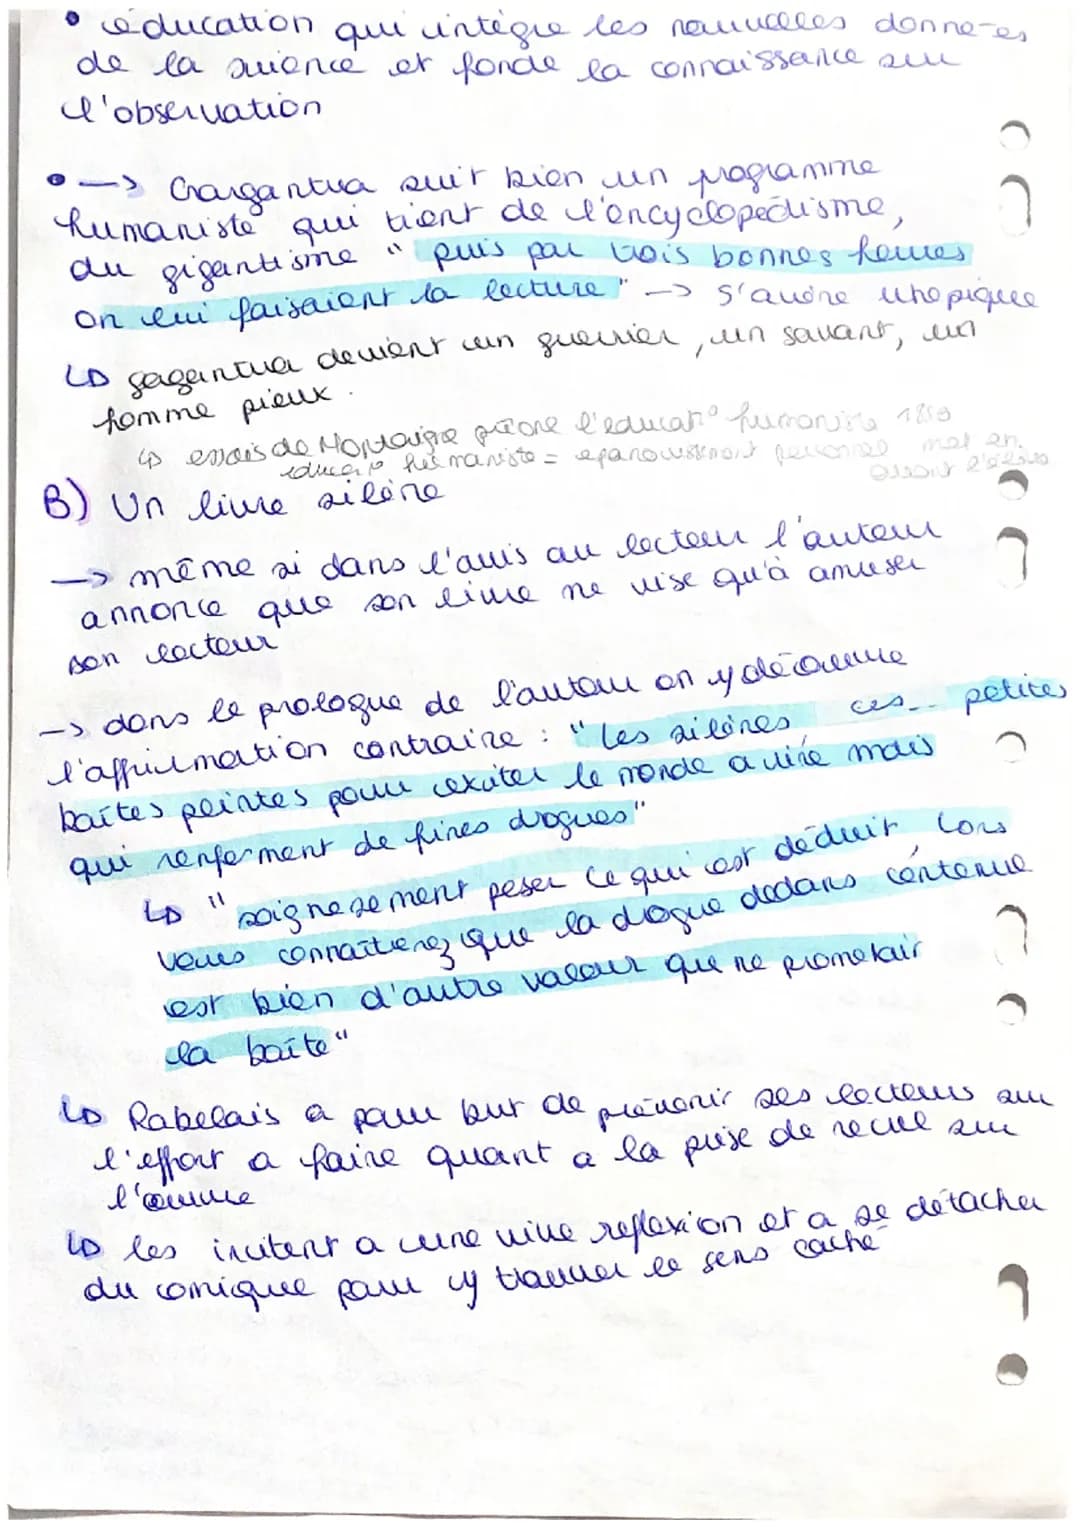 • éducation qui intègre les nouvelles données
de la science et fonde la connaissance sur
l'observation
• —> Gargantua suit bien un programme
humaniste qui tient de l'encyclopédisme,
du gigantisme " puis par trois bonnes heures
on lui faisaient la lecture" —> s'avère utopique
↳ gagantua devient un guerrier, un savant, un
homme pieux.
↳ essais de Montaigne prône l'éducat° humaniste
éducat° humaniste = épanouissement personnel
B) Un livre silène
—> même si dans l'avis au lecteur l'auteur
annonce que son livre ne vise qu'à amuser
son lecteur
—> dans le prologue de l'auteur on y découvre
l'affirmation contraire : "les silènes, ces... petites
boîtes peintes pour exciter le monde a rire mais
qui renferment de fines drogues"
↳ "soignesement peser ce qui est déduit, Lors
vous connaîtierez que la drogue dedans contenue
est bien d'autre valeur que ne prometait
la boîte"
↳ Rabelais a pour but de prévenir ses lecteurs sur
l'effort a faire quant a la prise de recul sur
l'œuvre
↳ les incitent a une vive reflexion et a se détacher
du comique pour y trouver le sens caché